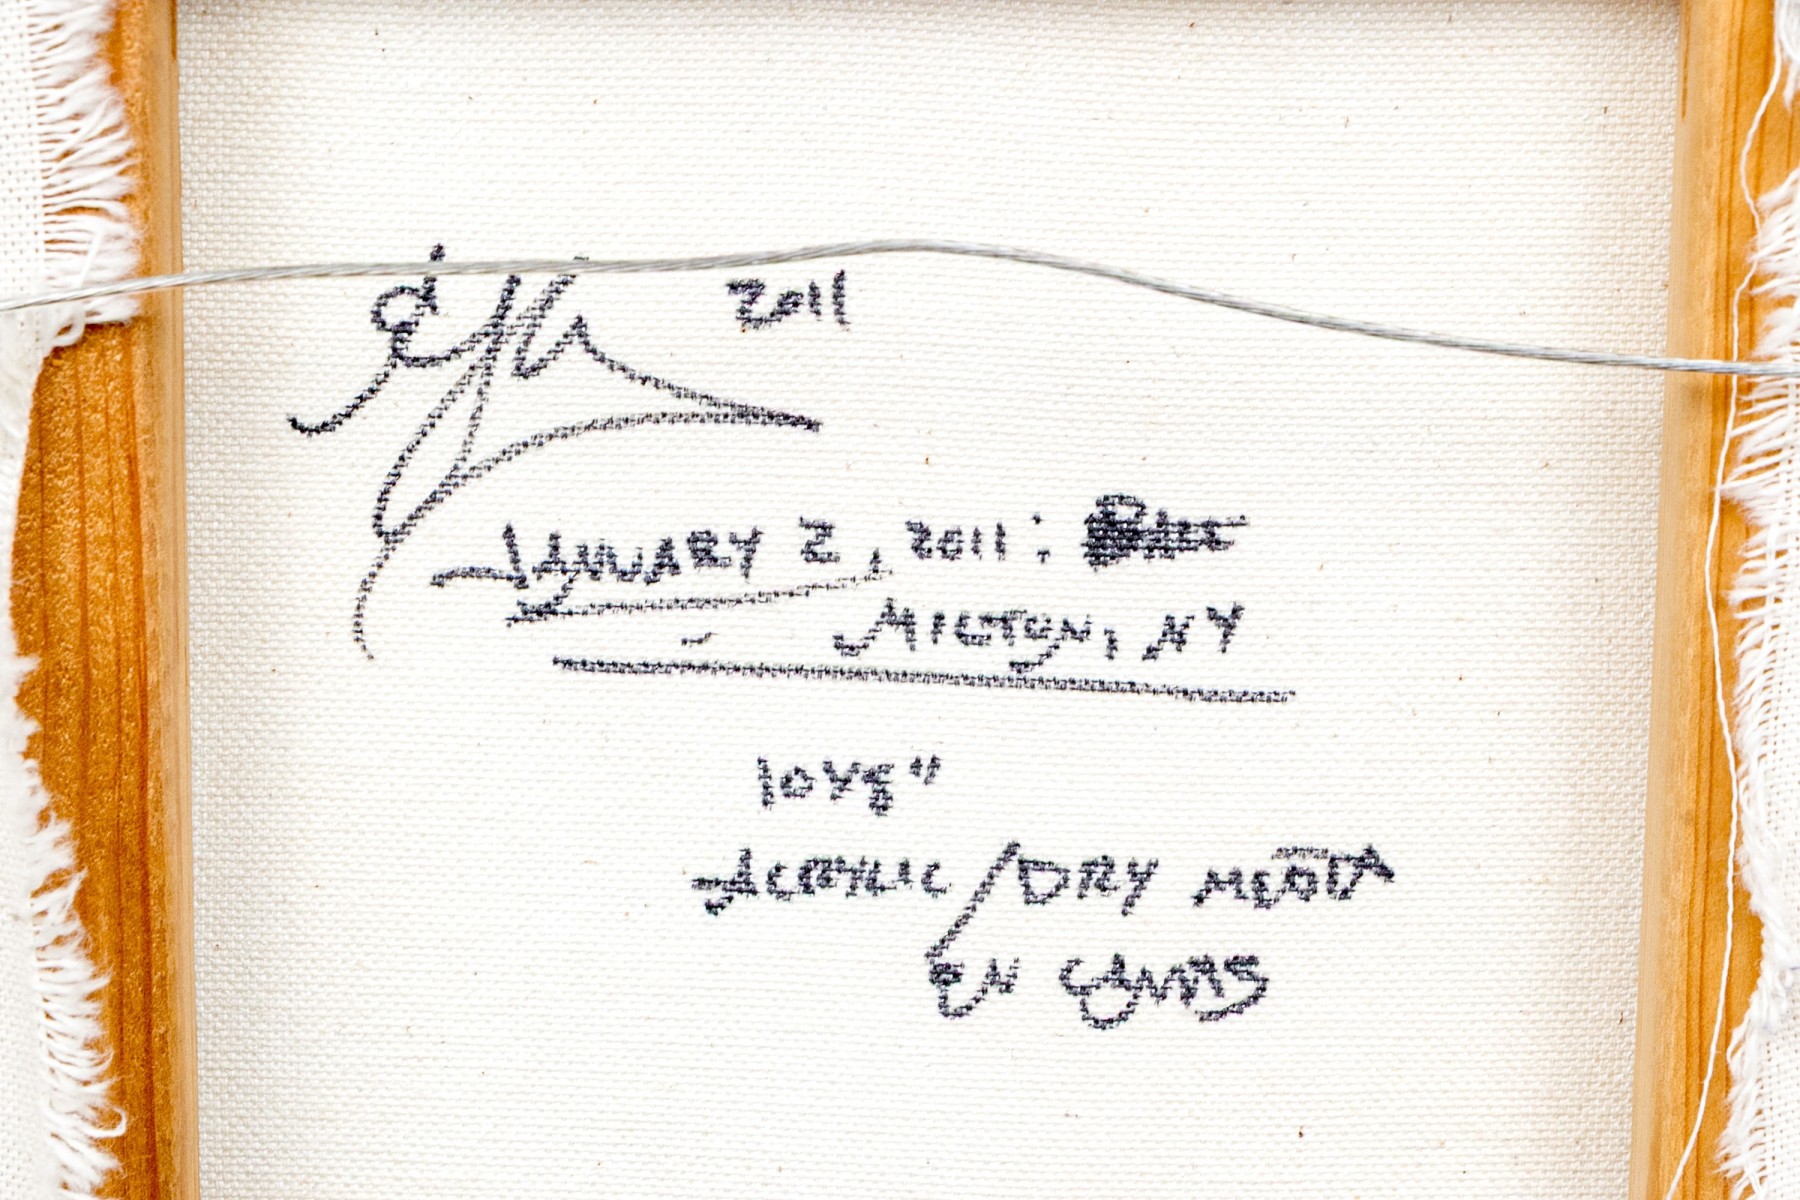 2011
JANUARY 2, 2011:
MILTON, NY
10x8"
ACRYLIC/DRY MEDIA
ON CANVAS